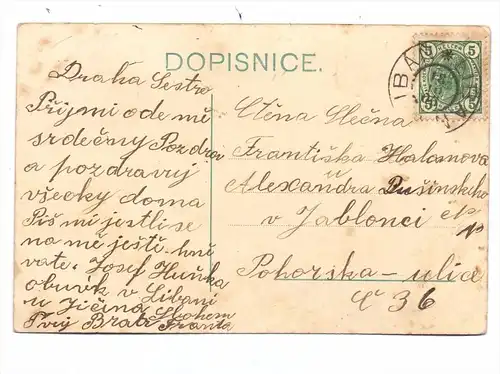 DOPISNICE.
Drahá Sestro
Přijmi ode mě
srdečný Pozdrav
a pozdravuj
všecky doma
Piš mi jestli se
na mě ještě hně
váte. Josef Huňka
obuvk v Libáni
u Jičína Sbohem
Tvůj Bratr Franta
Ctěná Slečna
Františka Halamova
u
Alexandra Dušinskeho
v Jablonci n/N
Pohorska-ulice
č 36
5 HELLER 5
5 5
LIBÁŇ